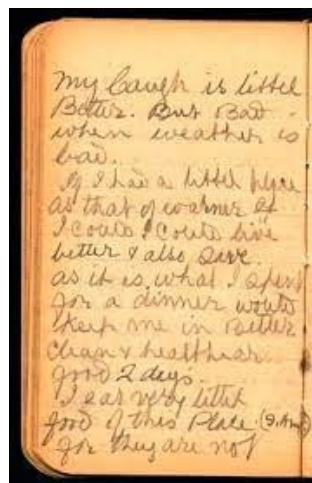 my Caugh is littel
Better. But Bad
when weather is
bad.
If I had a littel place
as that of warner
I could I could live
better & also save.
as it is what I spend
for a dinner would
keep me in Better
clean &
food 2 days.
I eat very littel
food of this Place
for they are not